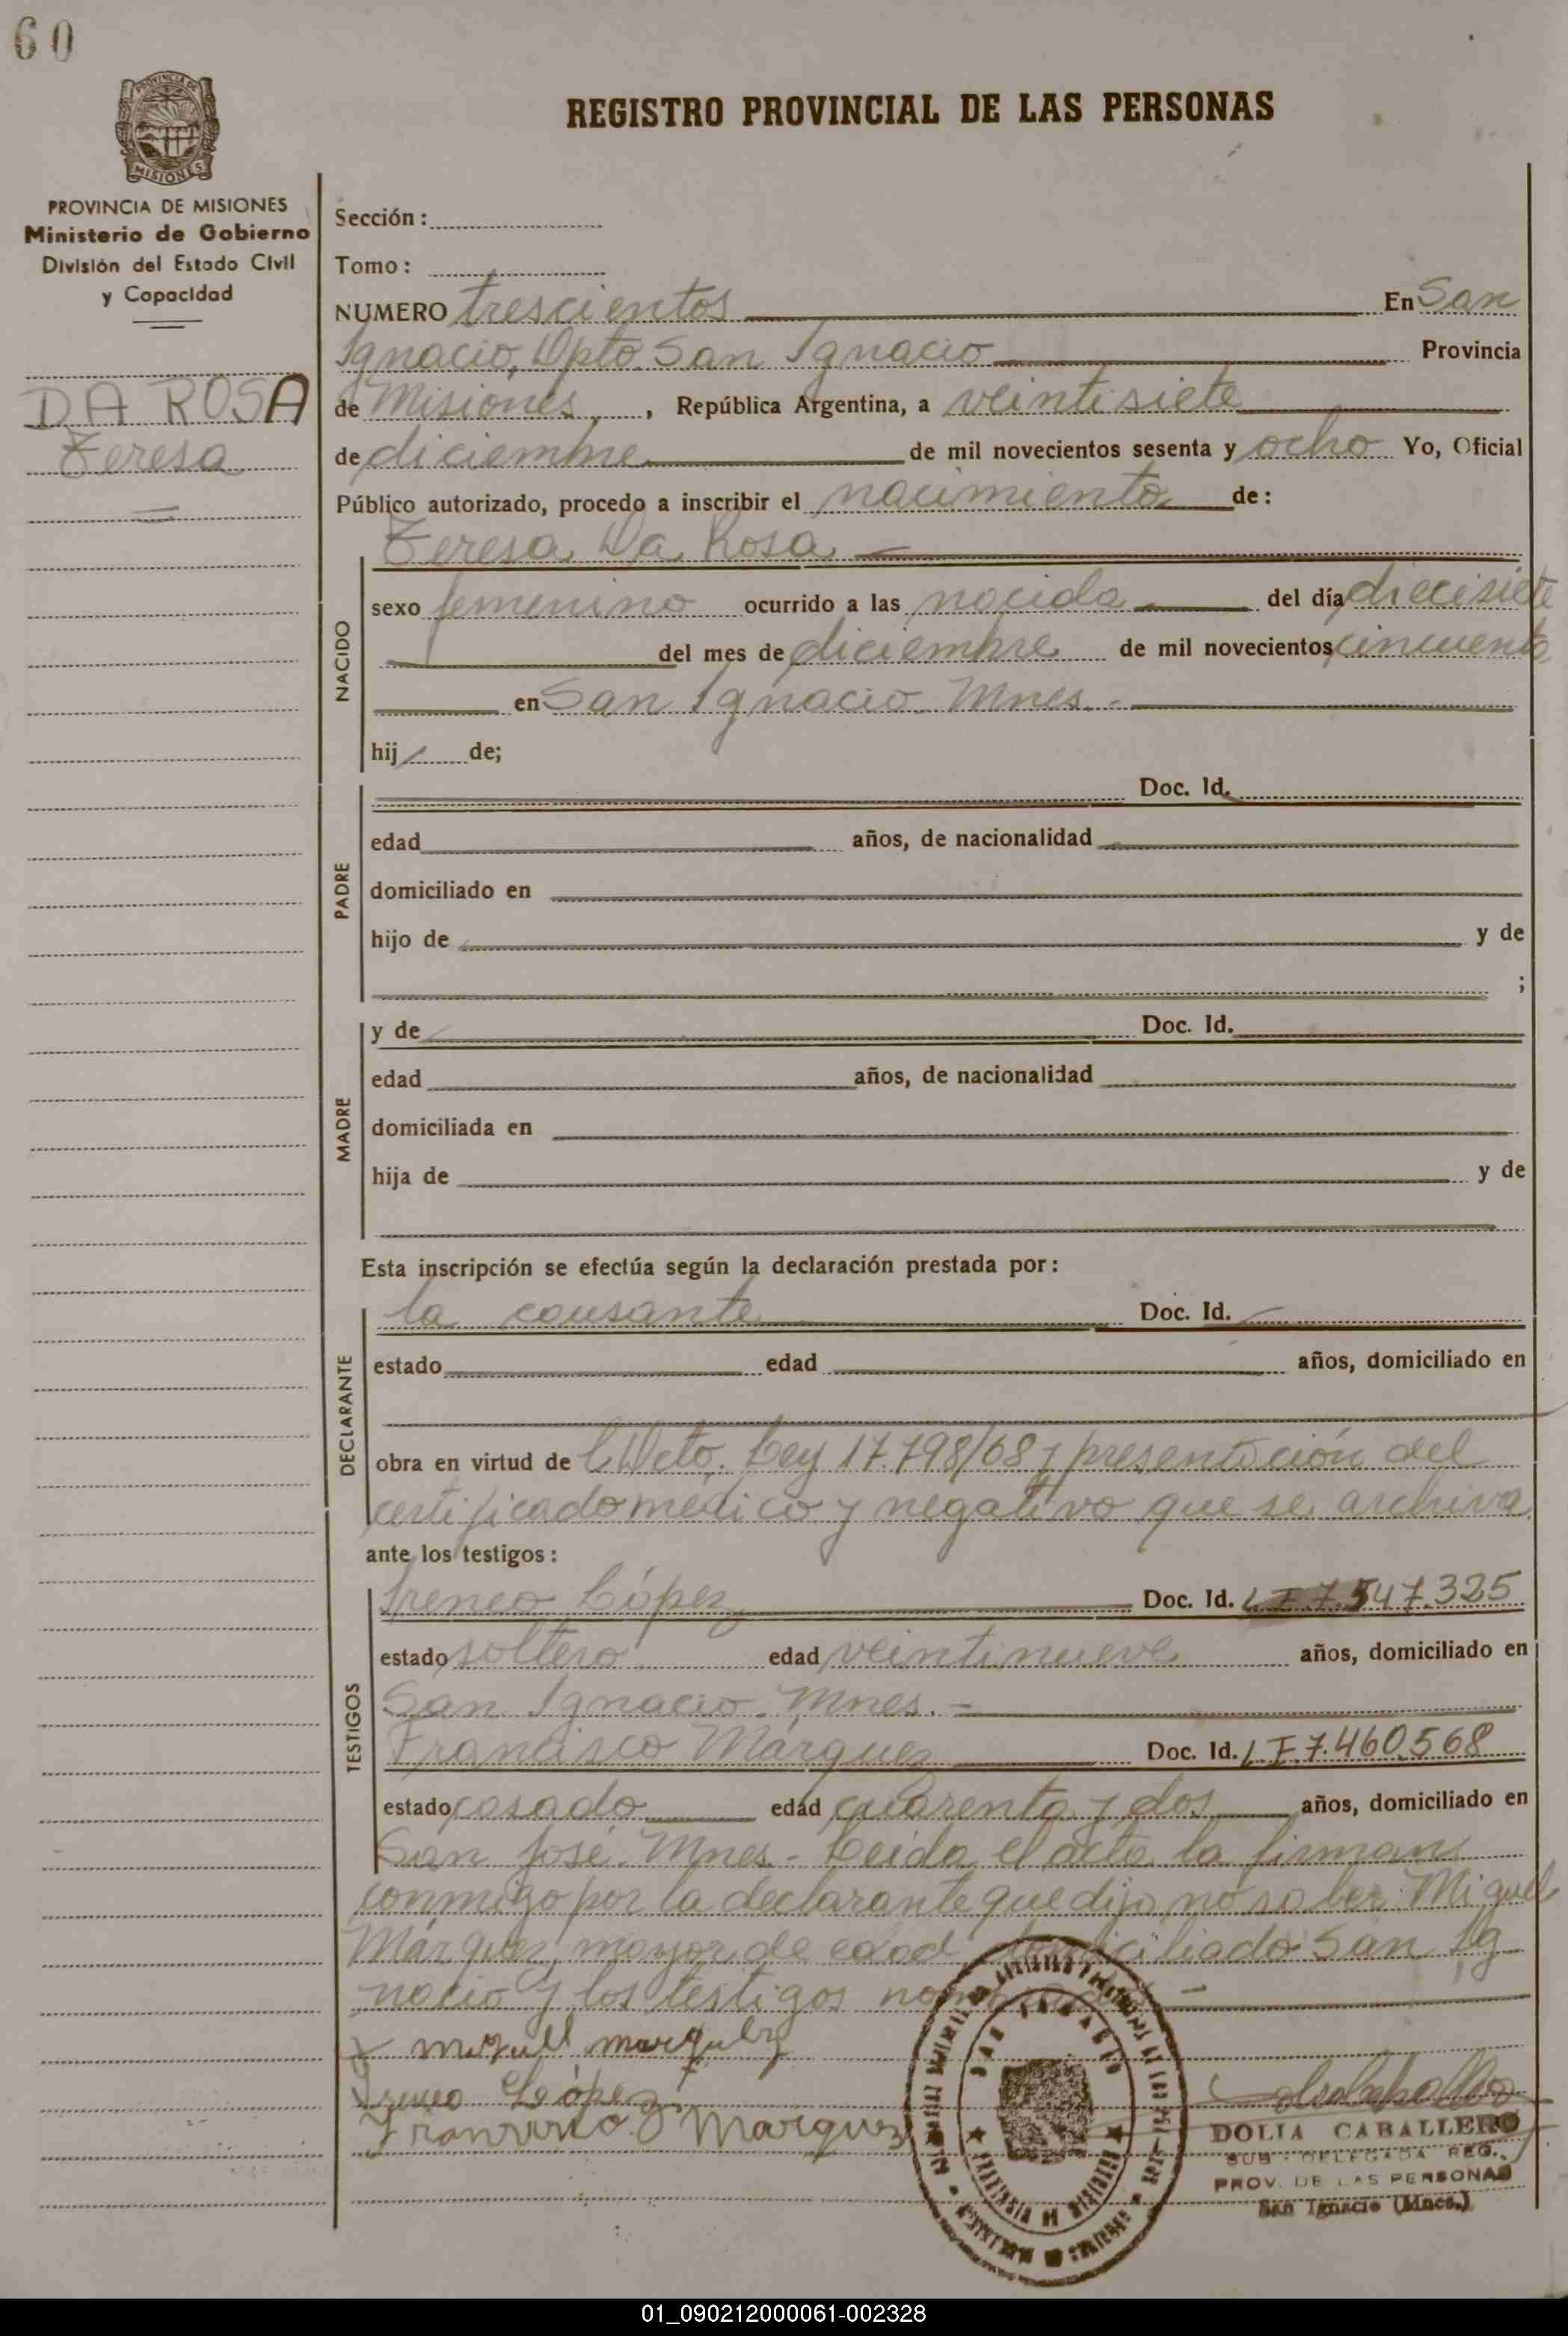 60
REGISTRO PROVINCIAL DE LAS PERSONAS
PROVINCIA DE
MISIONES
PROVINCIA DE MISIONES
Ministerio de Gobierno
División del Estado Civil
y Capacidad
DA ROSA
Teresa
Sección:
Tomo:
NUMERO trescientos En San
Ignacio, Dpto. San Ignacio Provincia
de Misiones, República Argentina, a veintisiete
de diciembre de mil novecientos sesenta y ocho Yo, Oficial
Público autorizado, procedo a inscribir el nacimiento de:
Teresa Da Rosa
NACIDO
sexo femenino ocurrido a las nacida del día diecisiete
del mes de diciembre de mil novecientos cincuenta
en San Ignacio. Mnes.-
hij de;
PADRE
Doc. Id.
edad años, de nacionalidad
domiciliado en
hijo de y de
;
MADRE
y de Doc. Id.
edad años, de nacionalidad
domiciliada en
hija de y de
Esta inscripción se efectúa según la declaración prestada por:
DECLARANTE
la causante Doc. Id.
estado edad años, domiciliado en
obra en virtud de Dcto. Ley 17.798/68 y presentación del
certificado médico y negativo que se archiva
ante los testigos:
TESTIGOS
Ireneo López Doc. Id. L E 7.547.325
estado soltero edad veintinueve años, domiciliado en
San Ignacio. Mnes.-
Francisco Márquez Doc. Id. L E 7.460.568
estado casado edad cuarenta y dos años, domiciliado en
San José. Mnes.- Leída el acta la firman
conmigo por la declarante que dijo no saber Miguel
Márquez, mayor de edad domiciliado San Ig
nacio y los testigos
miguel marquez
Ireneo López
Francisco Marquez
SAN IGNACIO
DOLIA CABALLERO
SUB - DELEGADA REG.
PROV. DE LAS PERSONAS
San Ignacio (Mnes.)
01_090212000061-002328